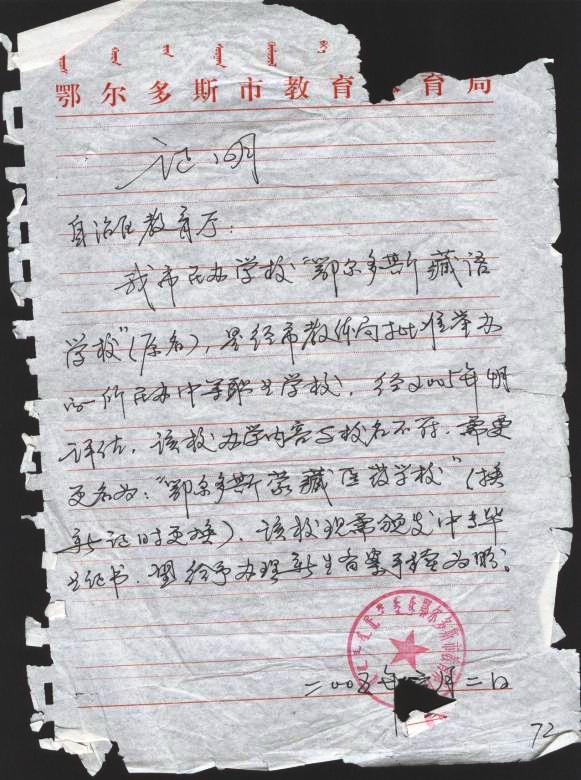 鄂尔多斯市教育 育局
证明
自治区教育厅：
我市民办学校“鄂尔多斯藏语
学校”（原名），是经市教体局批准举办
的一所民办中等职业学校，经2005年4月
评估，该校办学内容与校名不符，需要
更名为：“鄂尔多斯蒙藏医药学校”（换
新证时更换）。该校现需颁发中专毕
业证书，望给予办理新生备案手续为盼。
鄂尔多斯市教
二〇〇五年 月二日
72